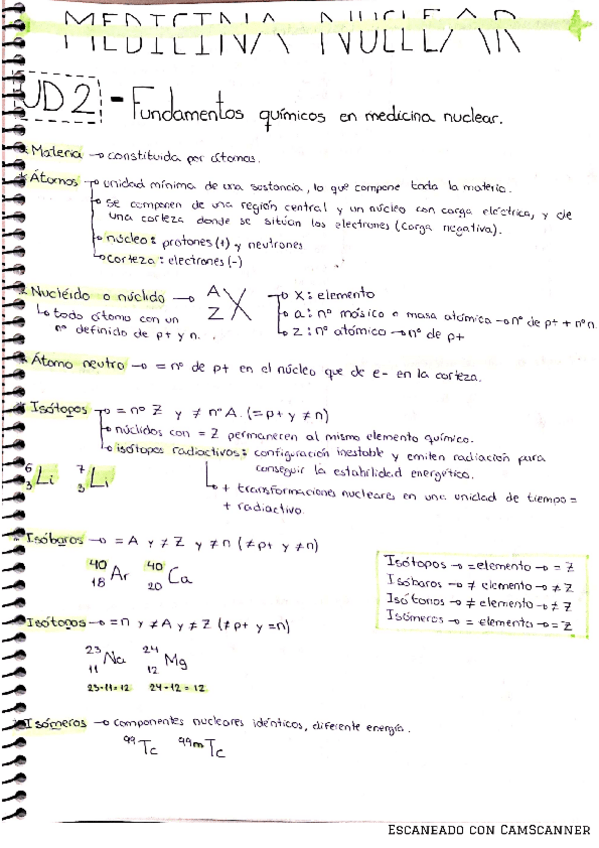 MEDICINA NUCLEAR
UD2 - Fundamentos químicos en medicina nuclear.
* Materia → constituida por átomos.
* Átomos → unidad mínima de una sustancia, lo que compone toda la materia.
→ se componen de una región central y un núcleo con carga eléctrica, y de
una corteza donde se sitúan los electrones (carga negativa).
→ núcleo: protones (+) y neutrones
→ corteza: electrones (-)
* Nucleido o núclido → A Z X → X: elemento
→ todo átomo con un nº definido de p+ y n.
→ a: nº másico o masa atómica → nº de p+ + nº n.
→ z: nº atómico → nº de p+
* Átomo neutro → = nº de p+ en el núcleo que de e- en la corteza.
* Isótopos → = nº Z y ≠ nº A. (= p+ y ≠ n)
→ núclidos con = Z permanecen al mismo elemento químico.
→ isótopos radiactivos: configuración inestable y emiten radiación para
conseguir la estabilidad energética.
6 3 Li 7 3 Li
→ + transformaciones nucleares en una unidad de tiempo =
+ radiactivo.
* Isóbaros → = A y ≠ Z y ≠ n (≠ p+ y ≠ n)
40 18 Ar 40 20 Ca
Isótopos → = elemento → = Z
Isóbaros → ≠ elemento → ≠ Z
Isótonos → ≠ elemento → ≠ Z
Isómeros → = elemento → = Z
* Isótonos → = n y ≠ A y ≠ Z (≠ p+ y = n)
23 11 Na 24 12 Mg
23-11=12 24-12=12
* Isómeros → componentes nucleares idénticos, diferente energía.
99 Tc 99m Tc
ESCANEADO CON CAMSCANNER